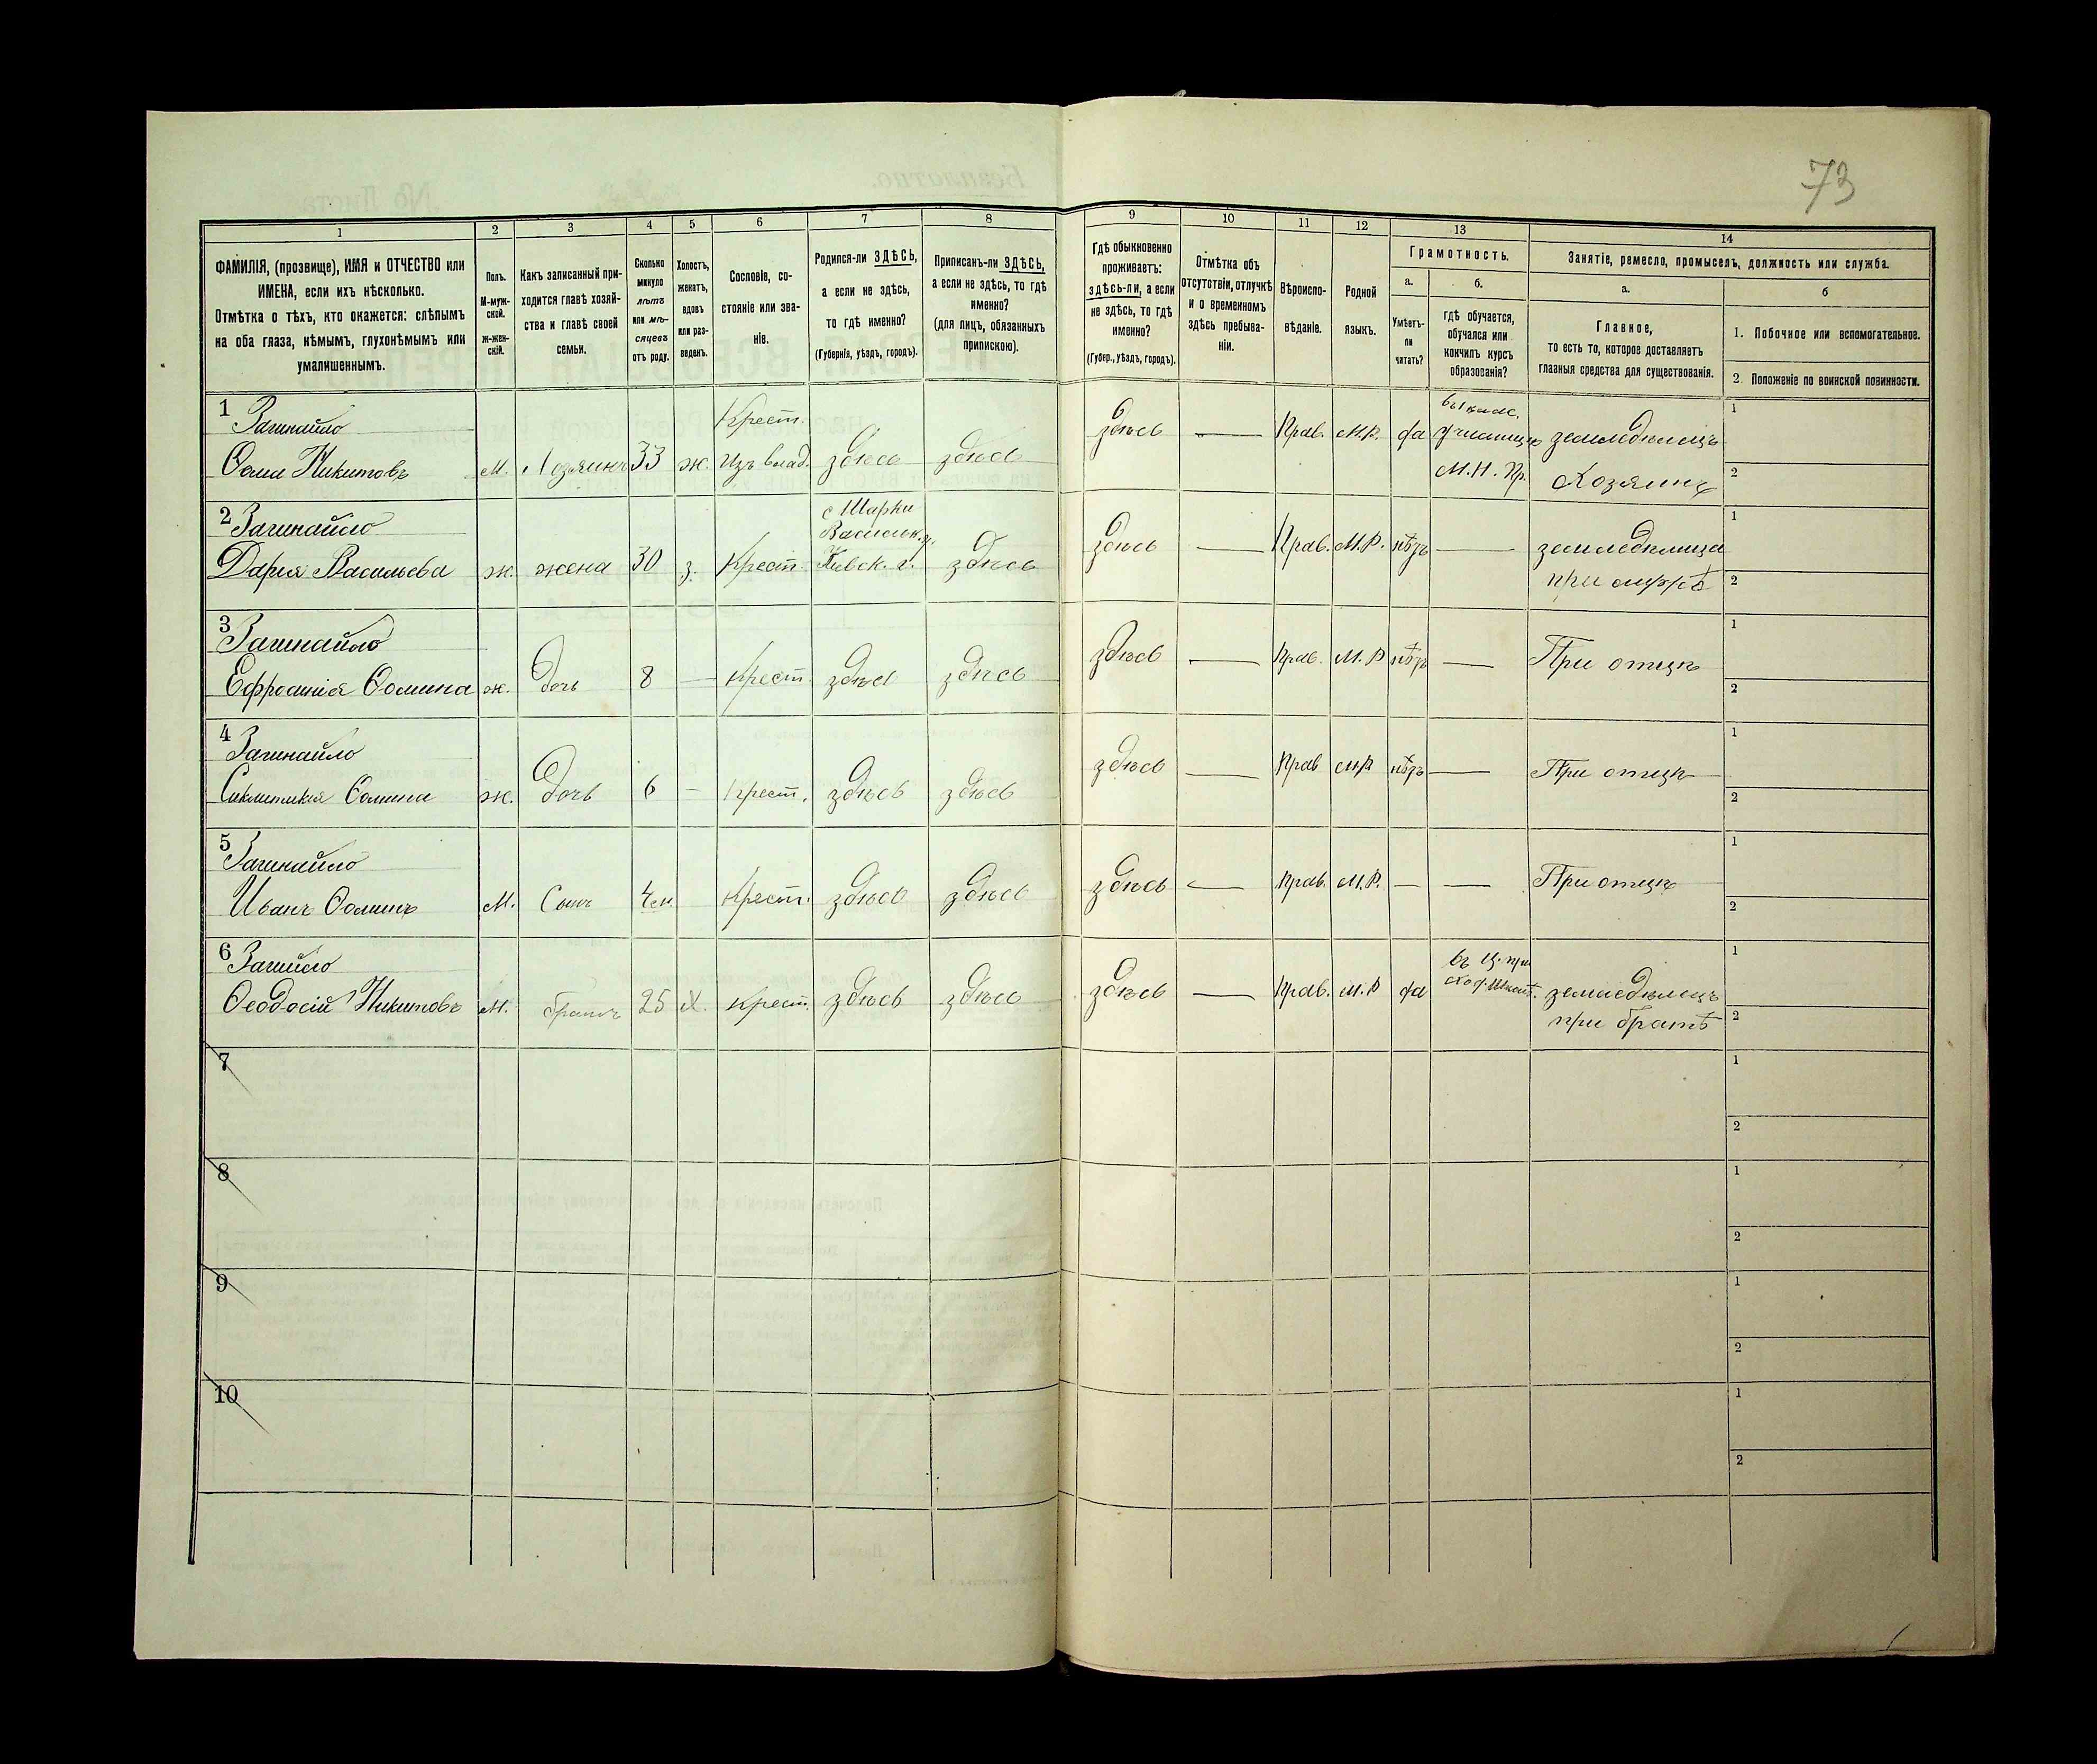 73
1
2
3
4
5
6
7
8
9
10
11
12
13
14
ФАМИЛІЯ, (прозвище), ИМЯ и ОТЧЕСТВО или
ИМЕНА, если ихъ нѣсколько.
Отмѣтка о тѣхъ, кто окажется: слѣпымъ
на оба глаза, нѣмымъ, глухонѣмымъ или
умалишеннымъ.
Полъ.
М-муж-
ской.
ж-жен-
скій.
Какъ записанный при-
ходится главѣ хозяй-
ства и главѣ своей
семьи.
Сколько
минуло
лѣтъ
или мѣ-
сяцевъ
отъ роду.
Холостъ,
женатъ,
вдовъ
или раз-
веденъ.
Сословіе, со-
стояніе или зва-
ніе.
Родился-ли ЗДѢСЬ,
а если не здѣсь,
то гдѣ именно?
(Губернія, уѣздъ, городъ).
Приписанъ-ли ЗДѢСЬ,
а если не здѣсь, то гдѣ
именно?
(для лицъ, обязанныхъ
припискою).
Гдѣ обыкновенно
проживаетъ:
здѣсь-ли, а если
не здѣсь, то гдѣ
именно?
(Губер., уѣздъ, городъ).
Отмѣтка объ
отсутствіи, отлучкѣ
и о временномъ
здѣсь пребыва-
ніи.
Вѣроиспо-
вѣданіе.
Родной
языкъ.
Грамотность.
а.
Умѣетъ-
ли
читать?
б.
гдѣ обучается,
обучался или
кончилъ курсъ
образованія?
Занятіе, ремесло, промыселъ, должность или служба.
а.
Главное,
то есть то, которое доставляетъ
главныя средства для существованія.
б
1. Побочное или вспомогательное.
2. Положеніе по воинской повинности.
1 Зачинайло
Ѳома Никитовъ м. Хозяинъ 33 ж. Крест. изъ влад. здѣсь здѣсь здѣсь — Прав. М.Р. да училищѣ М.Н.Пр. земледѣлецъ
Хозяинъ
1
2
2 Зачинайло
Дарья Васильева ж. жена 30 з. Крест. с Шарки Васильк. у. Кіевск. г. здѣсь здѣсь — Прав. М.Р. нѣтъ — земледѣлица
при мужѣ
1
2
3 Зачинайло
Ефросинія Ѳомина ж. дочь 8 — Крест. здѣсь здѣсь здѣсь — Прав. М.Р нѣтъ — При отцѣ
1
2
4 Зачинайло
Синклитикія Ѳомина ж. дочь 6 — Крест. здѣсь здѣсь здѣсь — Прав М.Р нѣтъ — При отцѣ
1
2
5 Зачинайло
Иванъ Ѳоминъ м. Сынъ 4м Крест. здѣсь здѣсь здѣсь — Прав. М.Р. — — При отцѣ
1
2
6
Ѳеодосій Никитовъ м. братъ 25 х. Крест. здѣсь здѣсь здѣсь — Прав. М.Р да въ ц. при земледѣлецъ
при братѣ
1
2
7
1
2
8
1
2
9
1
2
10
1
2